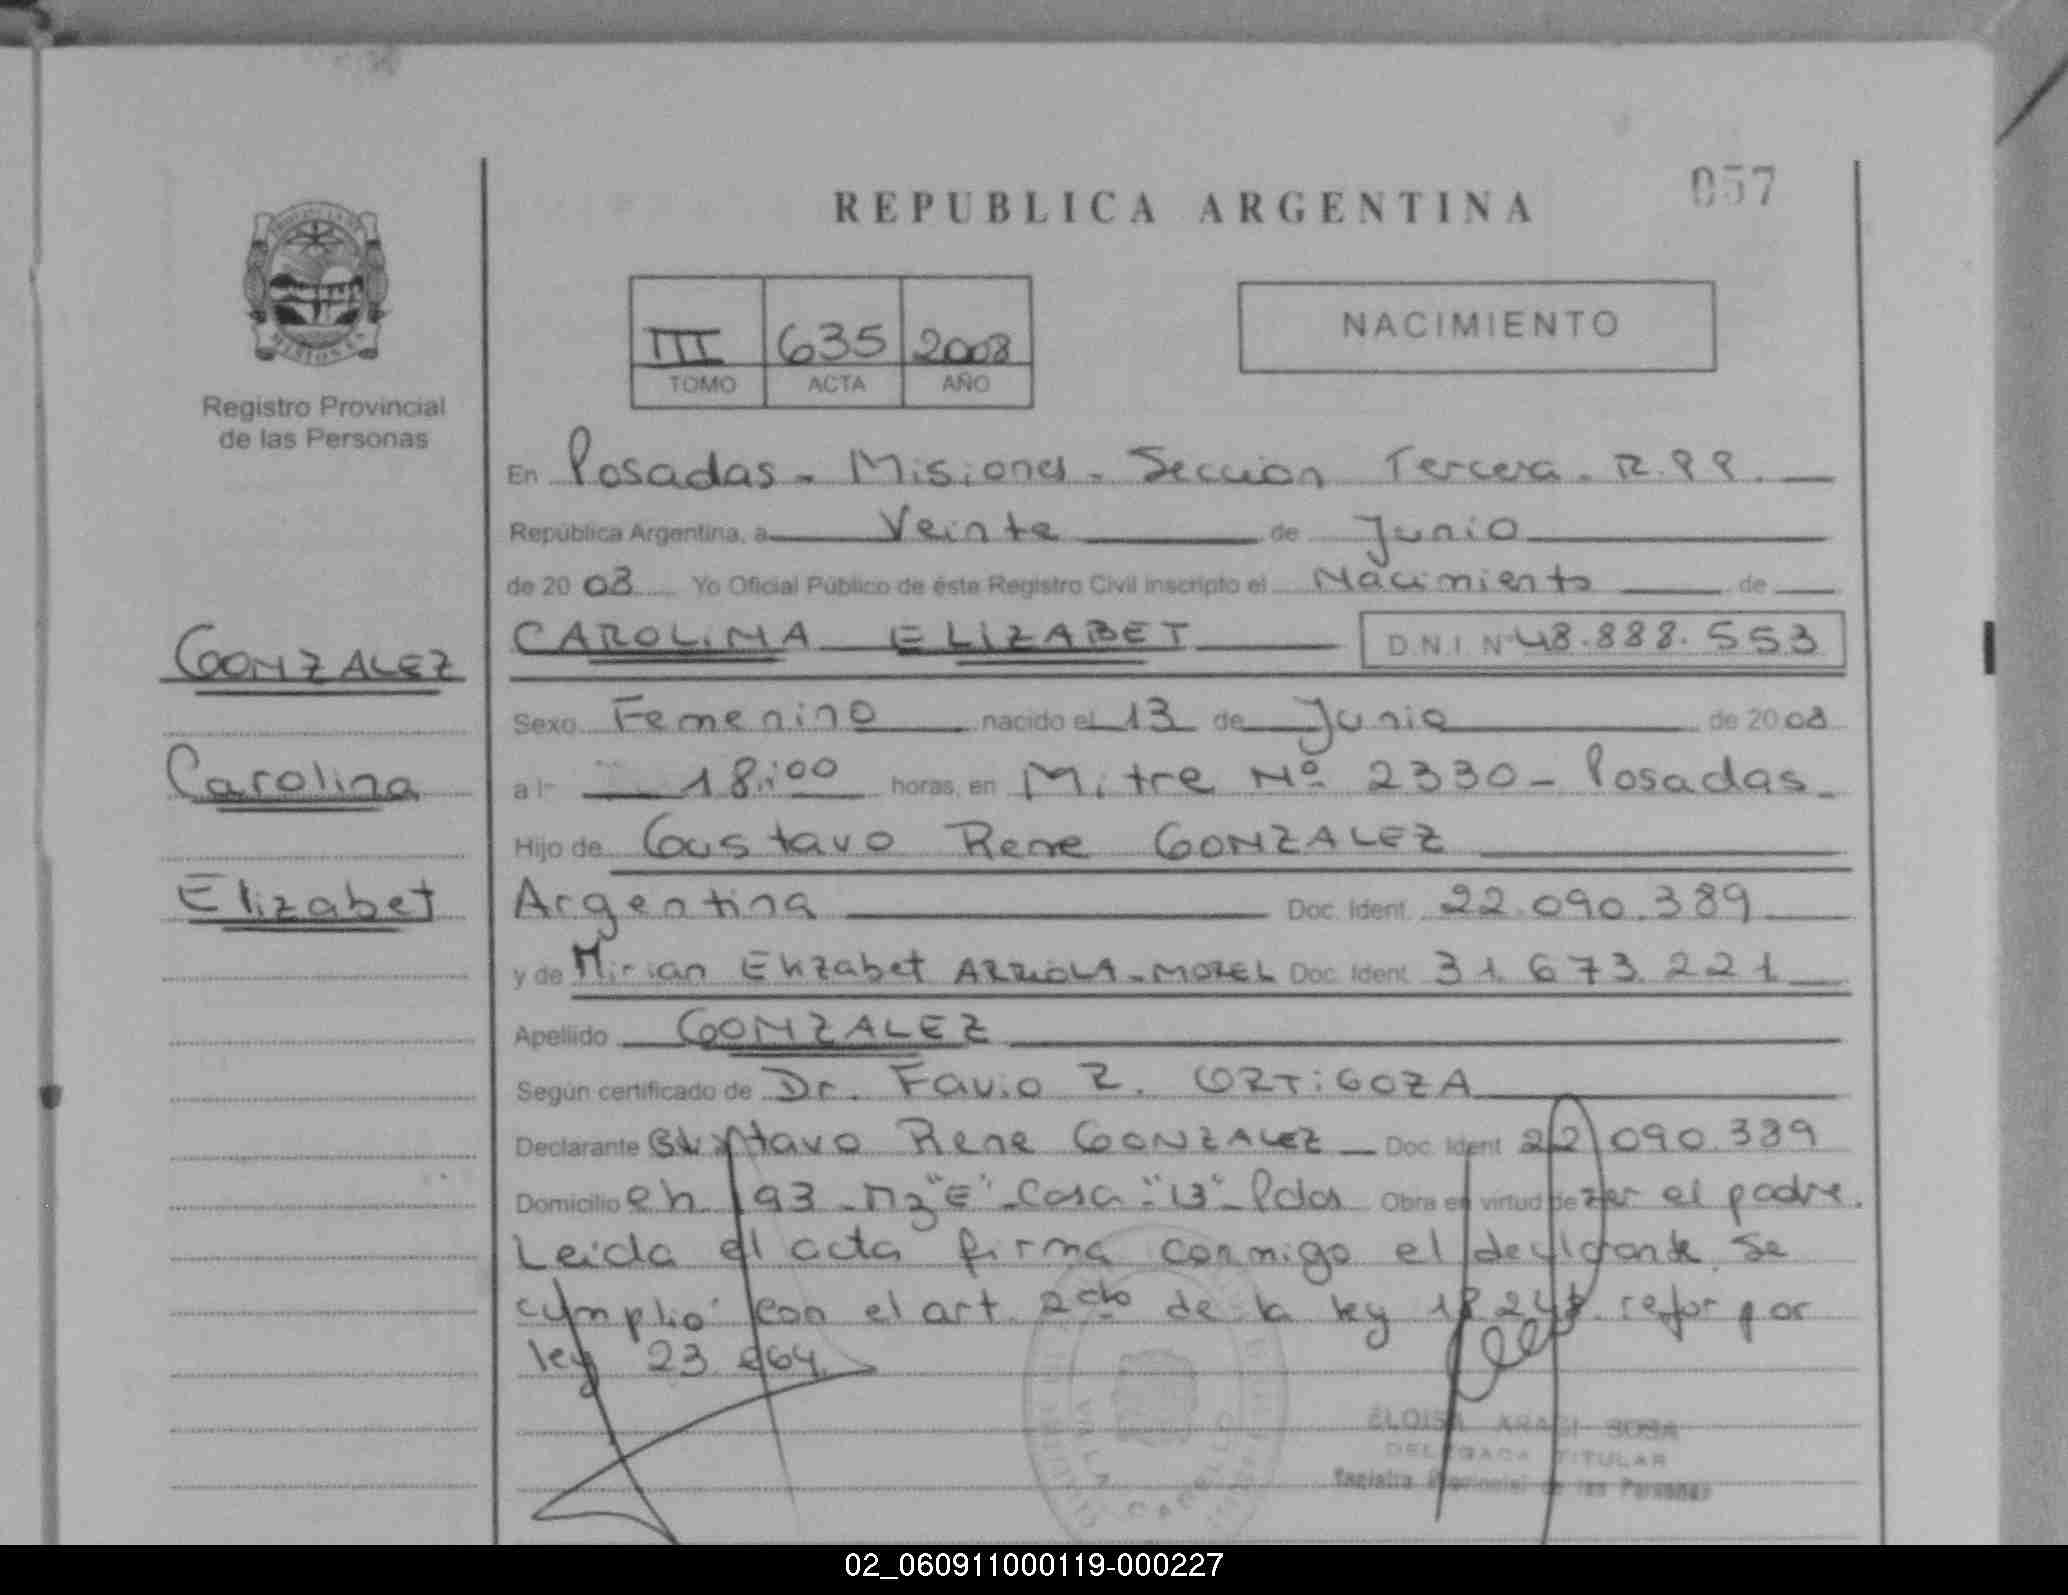 057
REPUBLICA ARGENTINA
MISIONES
Registro Provincial
de las Personas
III 635 2008
TOMO ACTA AÑO
NACIMIENTO
En Posadas - Misiones - Seccion Tercera - R.P.P.
República Argentina, a Veinte de Junio
de 2008 Yo Oficial Público de éste Registro Civil inscripto el Nacimiento de
GONZALEZ
Carolina
Elizabet
CAROLINA ELIZABET D.N.I. Nº 48.888.553
Sexo Femenino nacido el 13 de Junio de 2008
a l 18:00 horas, en Mitre Nº 2330 - Posadas -
Hijo de Gustavo Rene GONZALEZ
Argentina Doc. Ident. 22.090.389
y de Mirian Elizabet ARRIOLA - MOREL Doc. Ident. 31.673.221
Apellido GONZALEZ
Según certificado de Dr. Favio R. ORTIGOZA
Declarante Gustavo Rene GONZALEZ Doc. Ident. 22 090.389
Domicilio Ch 193 - Mz "E" - Casa "13" - Pdas Obra en virtud de ser el padre.
Leida el acta firma conmigo el declarante. Se
cumplió con el art. 2do de la ley refor por
ley 23
ELOISA SOSA
DELEGADA TITULAR
Registro Provincial de las Personas
02_060911000119-000227